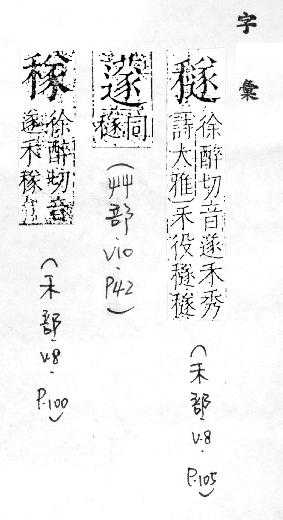 字彙
穟
徐醉切音遂禾秀
詩大雅禾役穟穟
(禾部 v.8 P.105)
同
穟
(艸部 v.10 P.42)
徐醉切音
遂禾稼
(禾部 v.8 P.100)